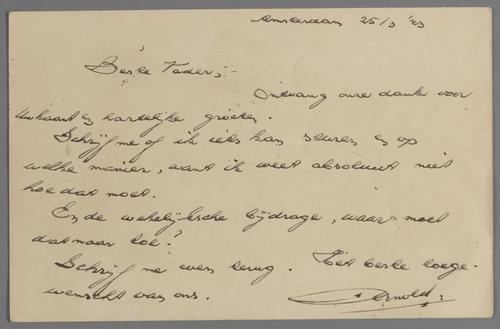 Amsterdam 25/3 '43
Beste Vader;-
Ontvang onze dank voor
Uw kaart en hartelijke groeten.
Schrijf me of ik iets kan sturen en op
welke manier, want ik weet absoluut niet
hoe dat moet.
En de wekelijksche bijdrage, waar moet
dat maar toe?
Schrijf me even terug. Het beste toege-
wenscht van ons.
Arnold.